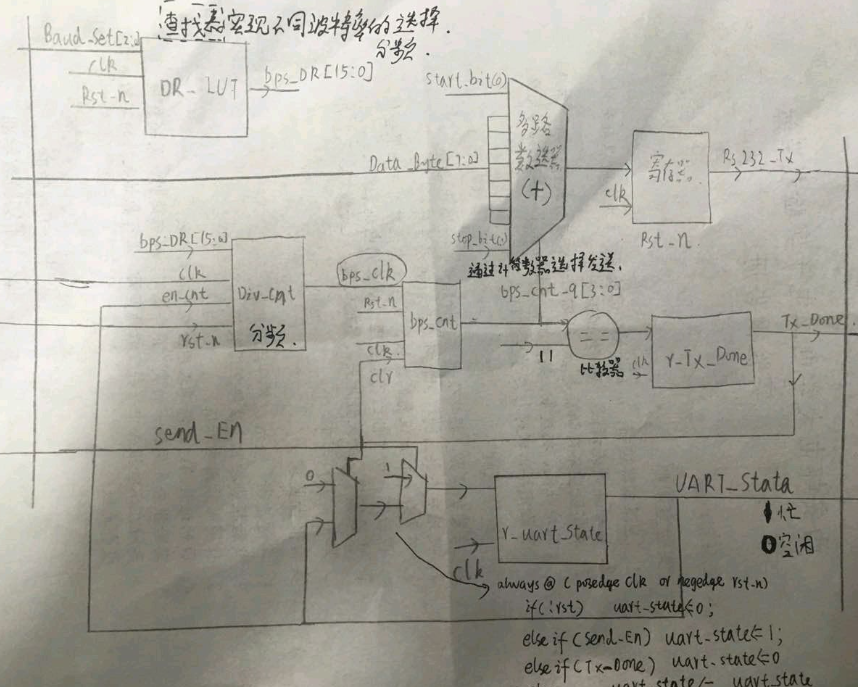 查找表实现不同波特率的选择.
分频.
Baud_Set[2:0]
clk
Rst_n
DR_LUT
bps_DR[15:0]
start_bit(0)
Data_Byte[7:0]
stop_bit(1)
多路
(十)
通过计数器选择发送.
寄存器.
clk
Rst_n.
Rs232_Tx
bps_DR[15:0]
clk
en_cnt
rst_n
Div_Cnt
分频.
bps_clk
Rst_n
clk
clr
bps_cnt
bps_cnt_q[3:0]
11
==
比较器
clk
r_Tx_Done
Tx_Done
send_En
0
1
clk
r_uart_state
UART_Stata
1忙
0空闲
always@(posedge clk or negedge rst_n)
if(!rst) uart_state<=0;
else if(Send_En) uart_state<=1;
else if(Tx_Done) uart_state<=0
uart_state<= uart_state